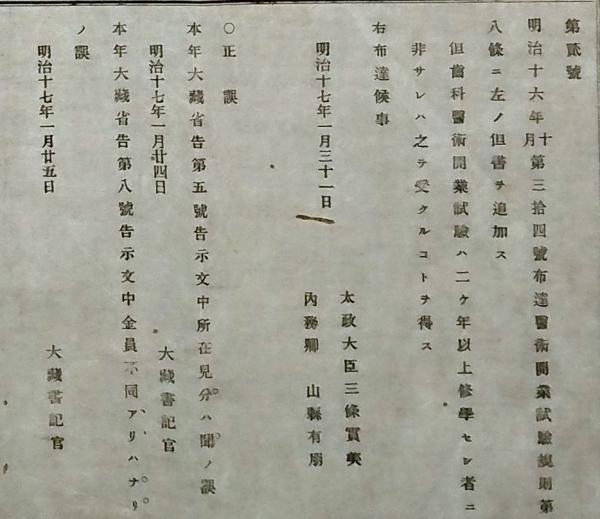 第貳號
明治十六年十月第三拾四號布達醫術開業試驗規則第
八條ニ左ノ但書ヲ追加ス
但齒科醫術開業試驗ハ二ケ年以上修學セシ者ニ
非サレハ之ヲ受クルコトヲ得ス
右布達候事
明治十七年一月三十一日
太政大臣三條實美
內務卿 山縣有朋
〇正誤
本年大藏省告第五號告示文中所在見分ハ聞ノ誤
明治十七年一月廿四日
大藏書記官
本年大藏省告第八號告示文中金員不同アリハナリ
ノ誤
明治十七年一月廿五日
大藏書記官